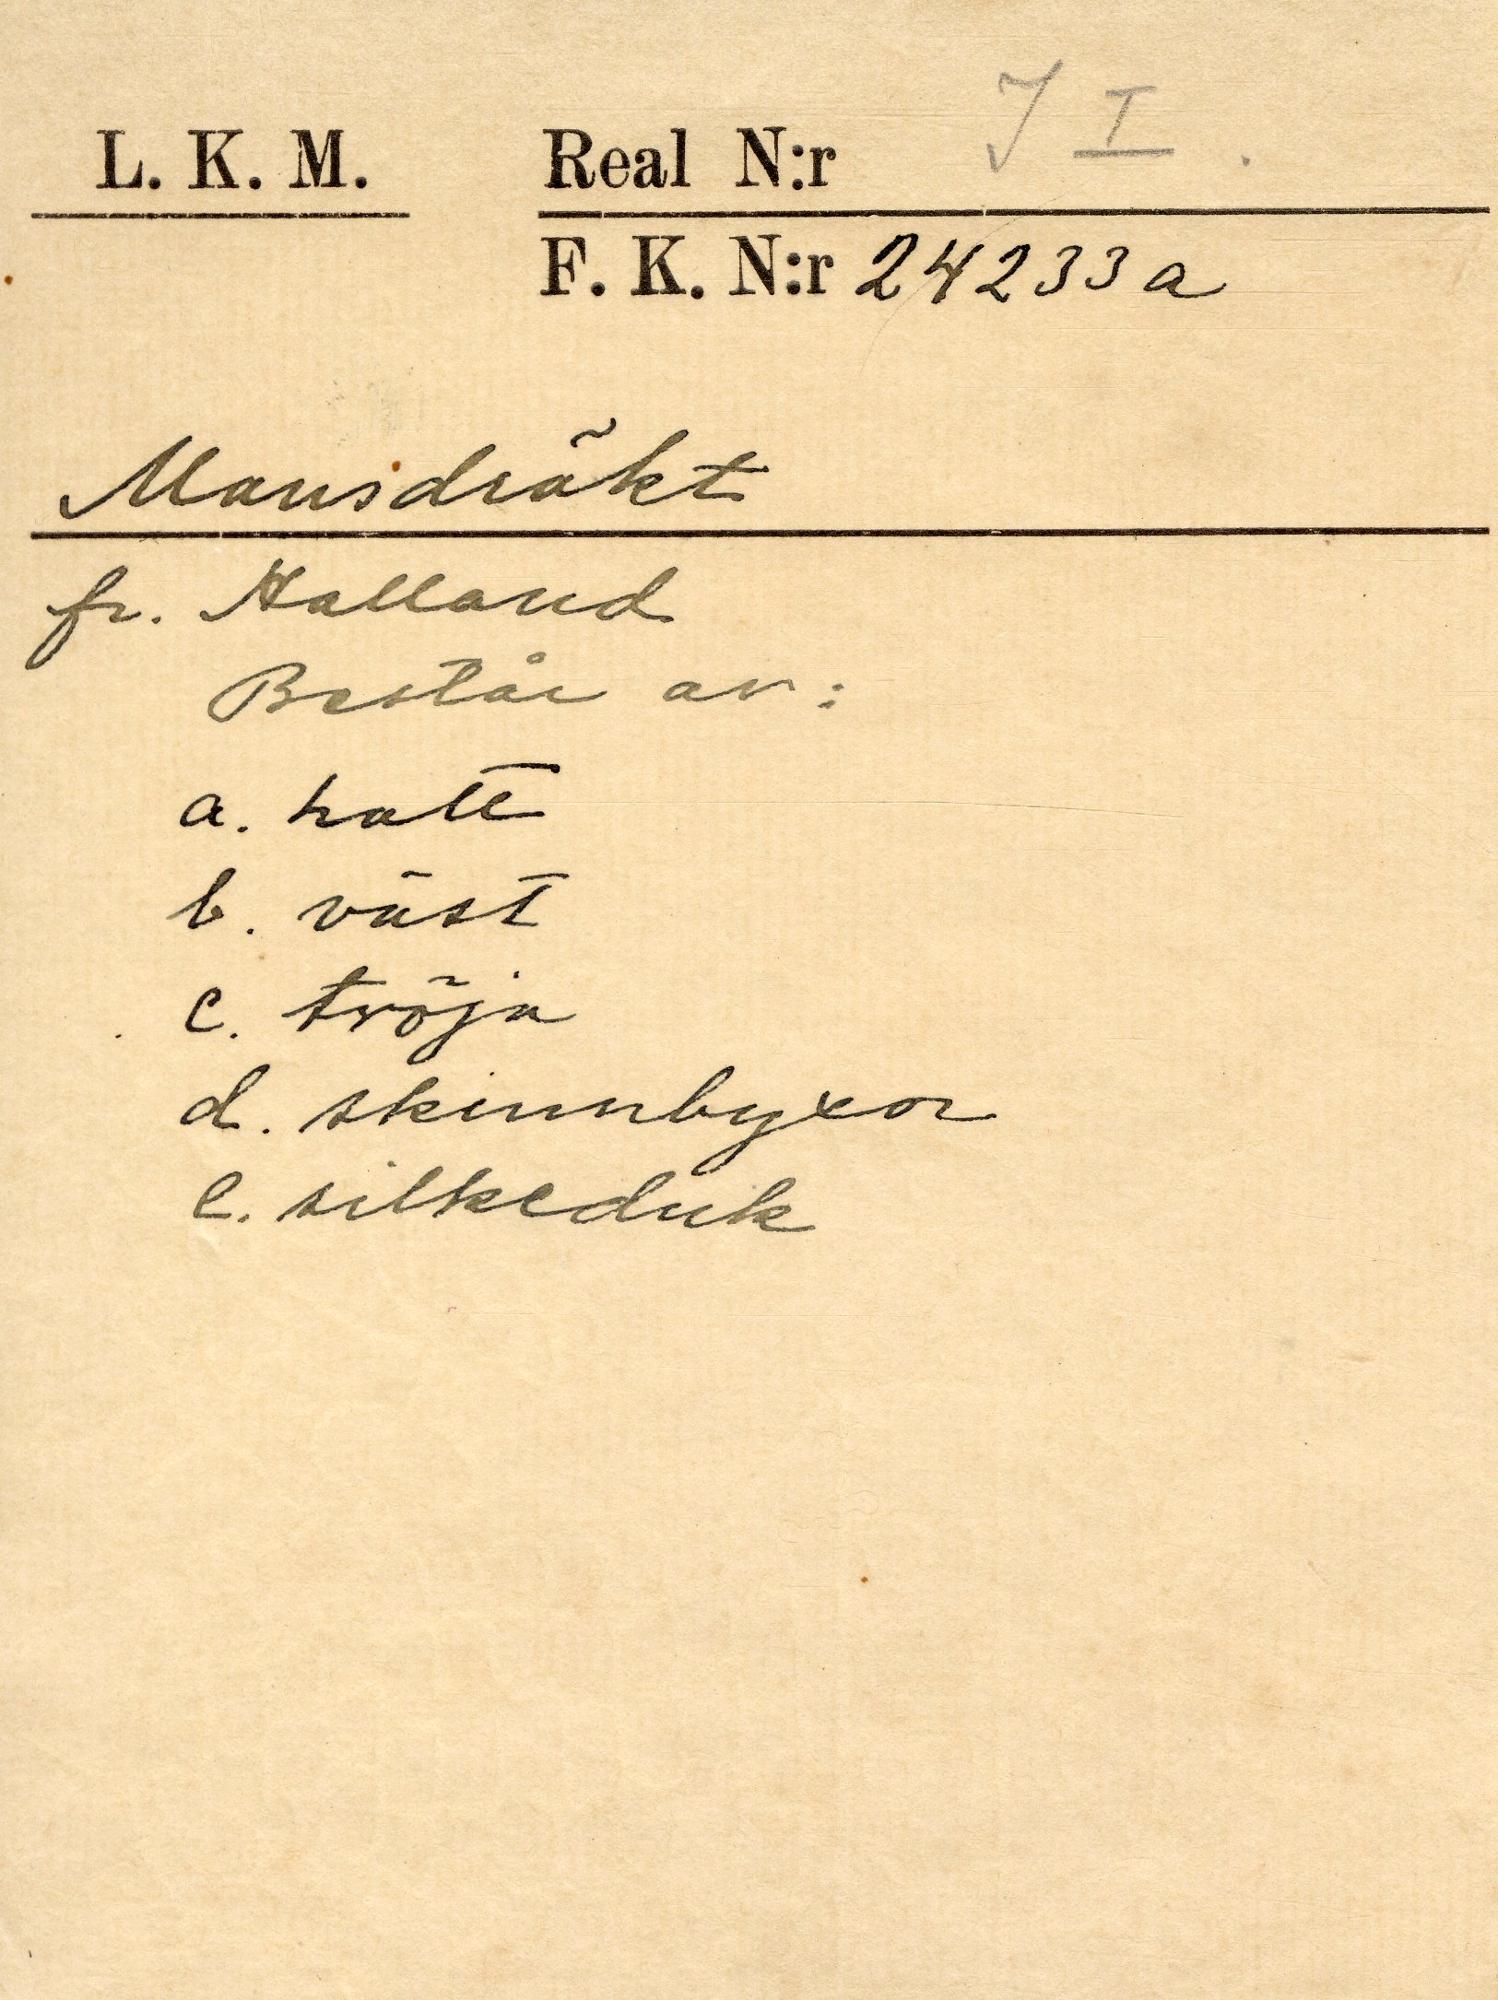 L. K. M. Real N:r J I.
F. K. N:r 24233 a
Mansdräkt
fr. Halland
Består av:
a. hatt
b. väst
c. tröja
d. skinnbyxor
e. silkeduk